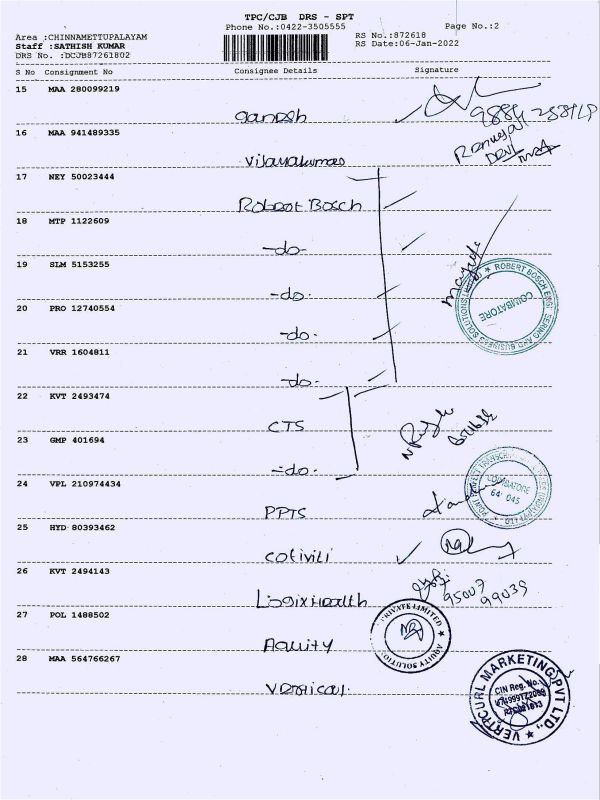 TPC/CJB DRS - SPT
Phone No.:0422-3505555
Page No.:2
Area :CHINNAMETTUPALAYAM
Staff :SATHISH KUMAR
DRS No. :DCJB87261802
RS No.:872618
RS Date:06-Jan-2022
S No Consignment No Consignee Details Signature
15 MAA 280099219
Ganesh
16 MAA 941489335
Vijayakumar
17 NEY 50023444
Robert Bosch
18 MTP 1122609
-do-
19 SLM 5153255
-do-
20 PRO 12740554
-do-
21 VRR 1604811
-do-
22 KVT 2493474
CTS
23 GMP 401694
-do-
24 VPL 210974434
PPTS
25 HYD 80393462
Cotiviti
26 KVT 2494143
Logix Health
95007
99039
27 POL 1488502
Aquity
28 MAA 564766267
Vertical
ROBERT BOSCH ENGI
COIMBATORE
COIMBATORE
PRIVATE LIMITED
AQUITY SOLUTIO
VERTICURL MARKETING PVT LTD.,
CIN Reg. No.